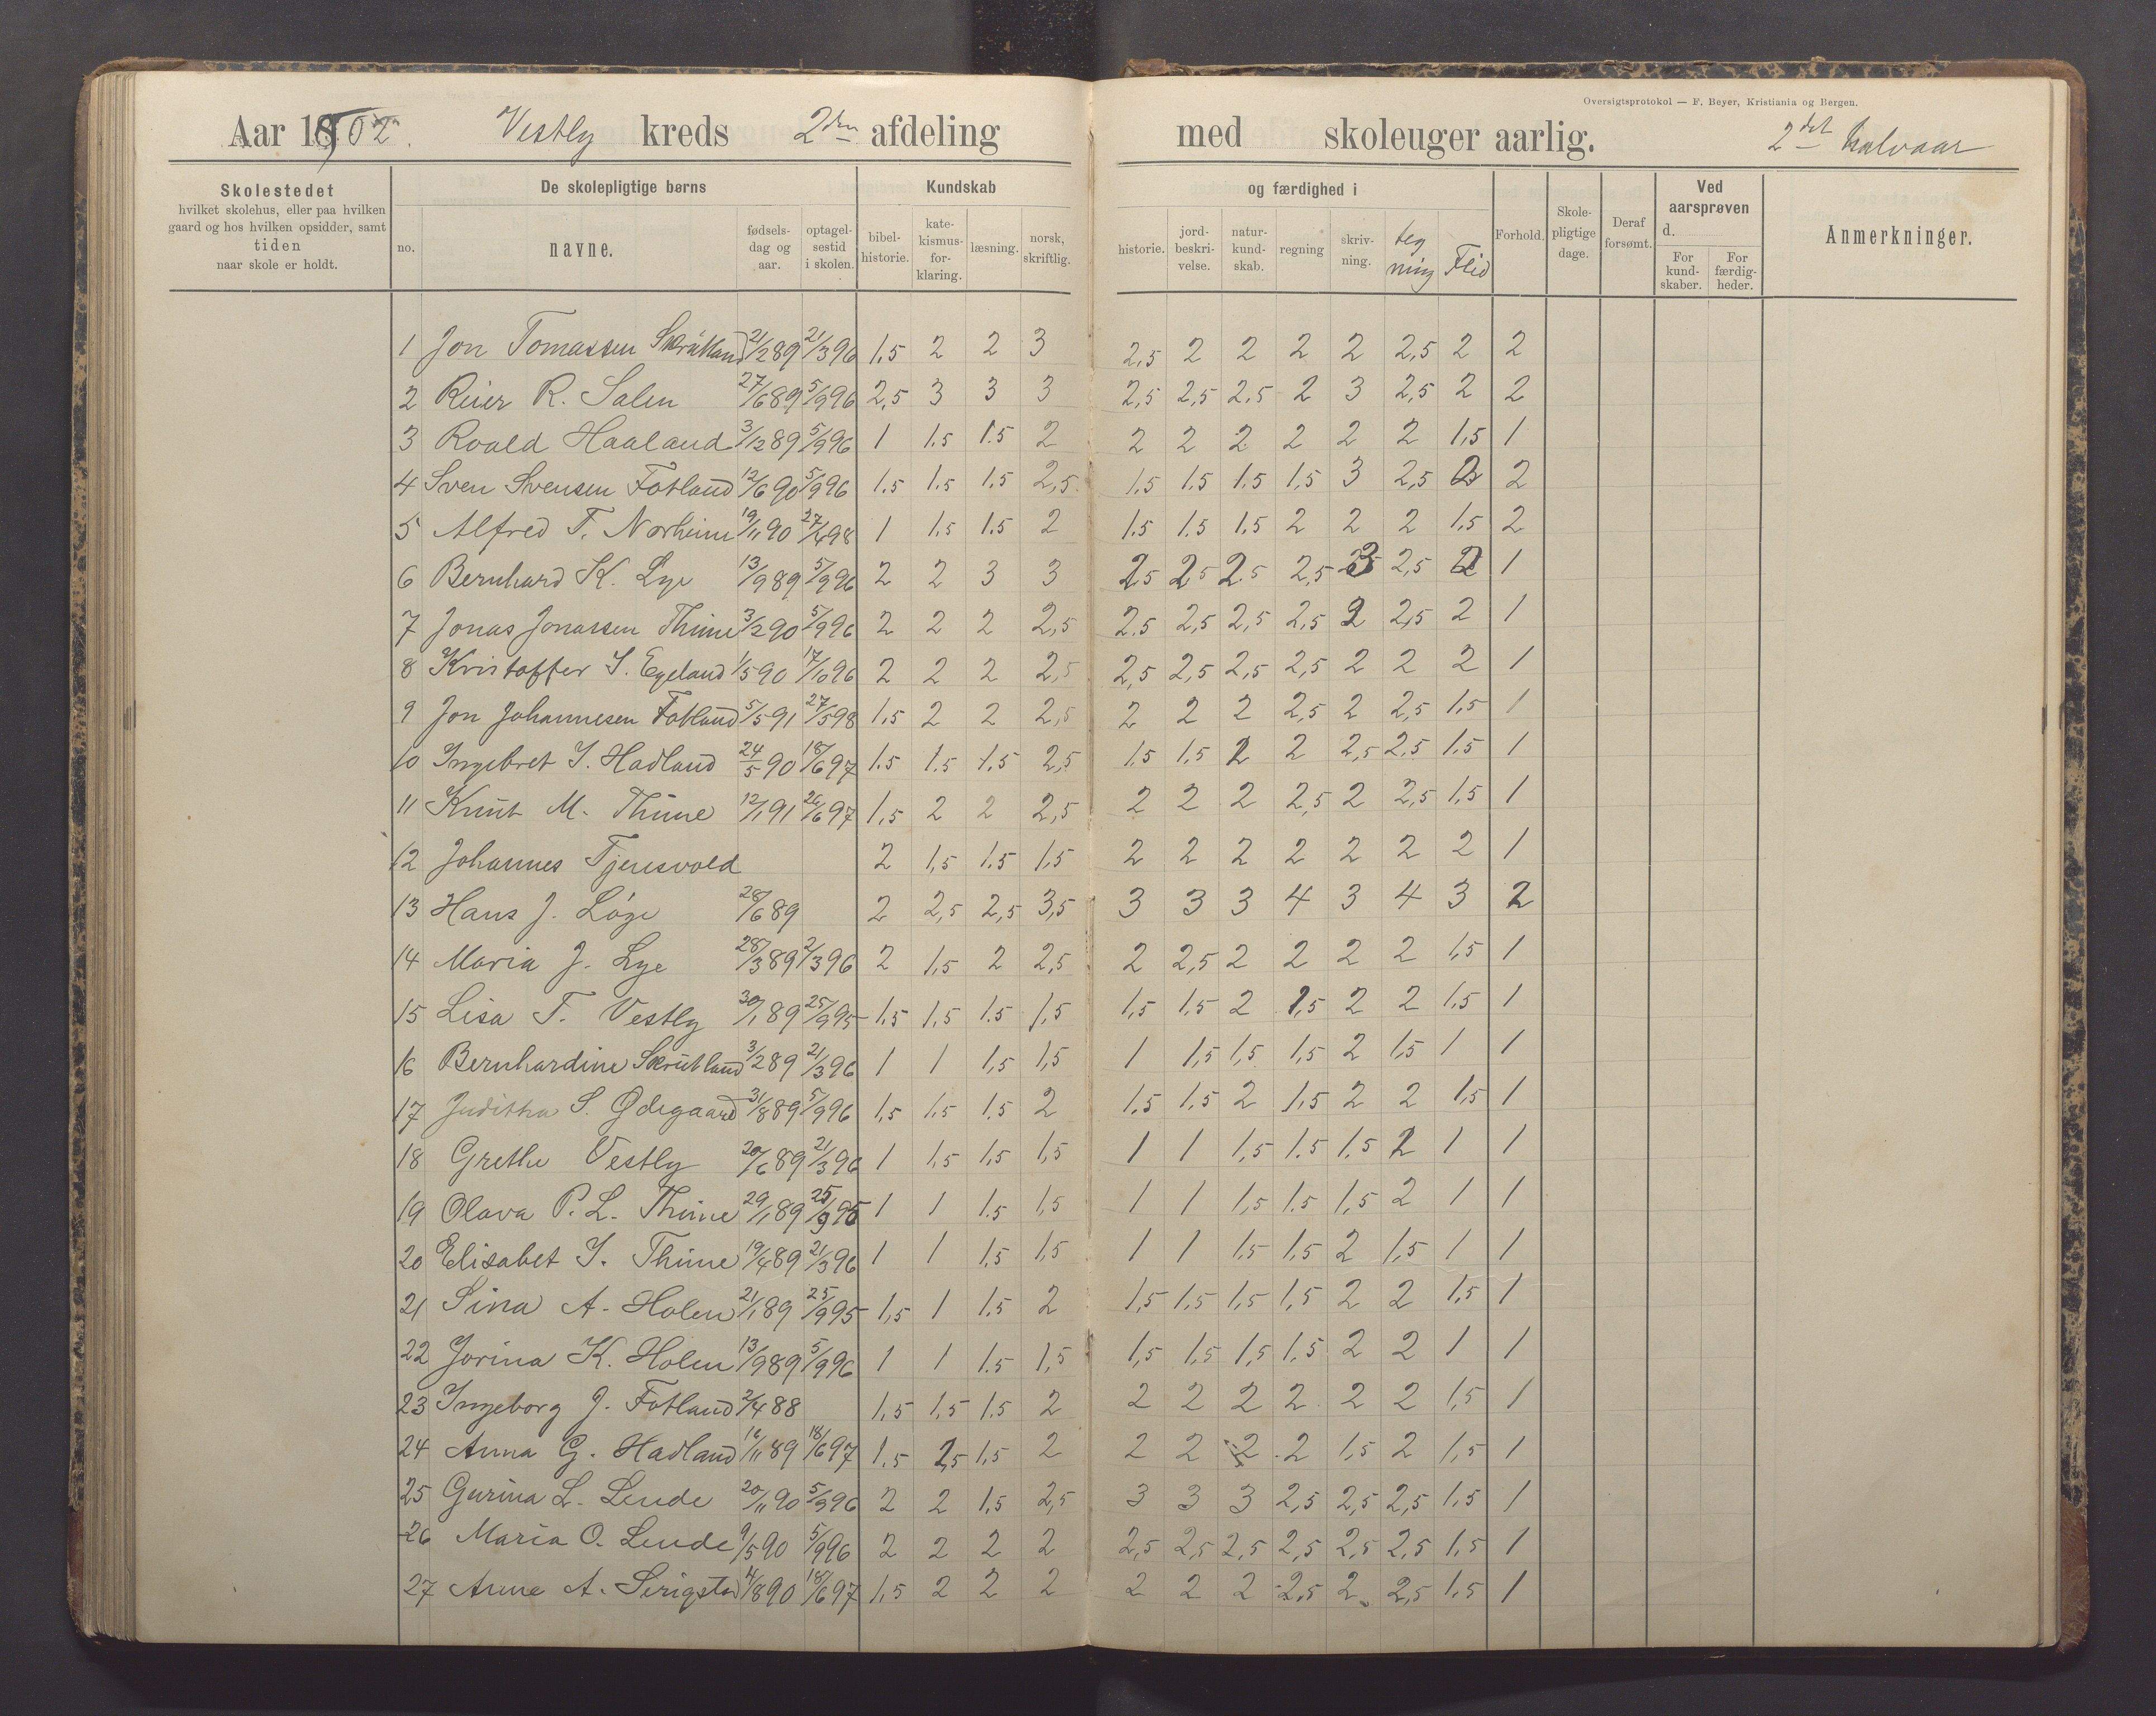 Oversigtsprotokol — F. Beyer, Kristiania og Bergen.
Aar 1902. Vestly kreds 2den afdeling med skoleuger aarlig. 2det halvaar
Skolestedet hvilket skolehus, eller paa hvilken gaard og hos hvilken opsidder, samt tiden naar skole er holdt. De skolepligtige børns no. navne. fødsels-dag og aar. optagel-sestid i skolen. Kundskab bibel-historie. kate-kismus-for-klaring. læsning. norsk, skriftlig. og færdighed i historie. jord-beskri-velse. natur-kund-skab. regning skriv-ning. teg ning Flid Forhold. Skole-pligtige dage. Deraf forsømt. Ved aarsprøven d. For kund-skaber. For færdig-heder. Anmerkninger.
1 Jon Tomassen Skrutland 21/2 89 21/3 96 1,5 2 2 3 2,5 2 2 2 2 2,5 2 2
2 Reier R. Salen 27/6 89 5/9 96 2,5 3 3 3 2,5 2,5 2,5 2 3 2,5 2 2
3 Roald Haaland 3/12 89 5/9 96 1 1.5 1.5 2 2 2 2 2 2 2 1,5 1
4 Sven Svensen Fotland 12/6 90 5/9 96 1.5 1.5 1.5 2,5 1.5 1.5 1.5 1,5 3 2,5 2 2
5 Alfred T. Norheim 19/11 90 27/4 98 1 1.5 1.5 2 1.5 1.5 1,5 2 2 2 1,5 2
6 Bernhard K. Lye 13/9 89 5/9 96 2 2 3 3 2,5 2,5 2.5 2,5 3 2,5 2 1
7 Jonas Jonassen Thime 3/2 90 5/9 96 2 2 2 2,5 2.5 2,5 2,5 2,5 2 2,5 2 1
8 Kristoffer I. Egeland 1/5 90 17/10 96 2 2 2 2,5 2,5 2,5 2,5 2,5 2 2 2 1
9 Jon Johannesen Fotland 5/5 91 27/5 98 1,5 2 2 2,5 2 2 2 2,5 2 2,5 1,5 1
10 Ingebret I. Hadland 24/5 90 18/6 97 1.5 1.5 1.5 2,5 1.5 1,5 2 2 2,5 2,5 1,5 1
11 Knut M. Thime 12/1 91 26/6 97 1,5 2 2 2,5 2 2 2 2,5 2 2,5 1,5 1
12 Johannes Tjensvold 2 1,5 1.5 1,5 2 2 2 2 2 2 2 1
13 Hans J. Løge 28/6 89 2 2,5 2,5 3,5 3 3 3 4 3 4 3 2
14 Maria J. Lye 28/3 89 2/3 96 2 1,5 2 2,5 2 2,5 2 2 2 2 1,5 1
15 Lisa T. Vestly 30/1 89 25/9 95 1,5 1,5 1.5 1,5 1,5 1.5 2 1,5 2 2 1.5 1
16 Bernhardine Skrutland 3/2 89 21/3 96 1 1 1,5 1,5 1 1,5 1,5 1,5 2 1,5 1 1
17 Juditha S. Ødegaard 31/8 89 5/9 96 1,5 1,5 1.5 2 1.5 1.5 2 1,5 2 2 1,5 1
18 Grethe Vestly 20/6 89 21/3 96 1 1,5 1,5 1,5 1 1 1,5 1.5 1.5 2 1 1
19 Olava P. L. Thime 29/1 89 25/9 95 1 1 1.5 1,5 1 1 1,5 1.5 1,5 2 1 1
20 Elisabet I. Thime 19/4 89 21/3 96 1 1 1,5 1,5 1 1 1,5 1,5 2 1,5 1 1
21 Sina A. Holen 21/1 89 25/9 95 1,5 1 1.5 2 1,5 1,5 1,5 1,5 2 2 1,5 1
22 Jorina K. Holen 13/9 89 5/9 96 1 1 1.5 1,5 1,5 1,5 1,5 1.5 2 2 1 1
23 Ingeborg J. Fotland 2/4 88 1,5 1,5 1.5 2 2 2 2 2 2 2 1,5 1
24 Anna G. Hadland 16/11 89 18/6 97 1,5 2,5 1,5 2 2 2 2 2 1,5 2 1,5 1
25 Gurina L. Lende 20/11 90 5/9 96 2 2 1,5 2,5 3 3 3 2,5 2,5 2,5 1,5 1
26 Maria O. Lende 9/5 90 5/9 96 2 2 2 2 2,5 2,5 2,5 2,5 2,5 2,5 1,5 1
27 Anne A. Serigstad 14/8 90 18/6 97 1,5 2 2 2 2 2 2 2,5 2 2,5 1,5 1